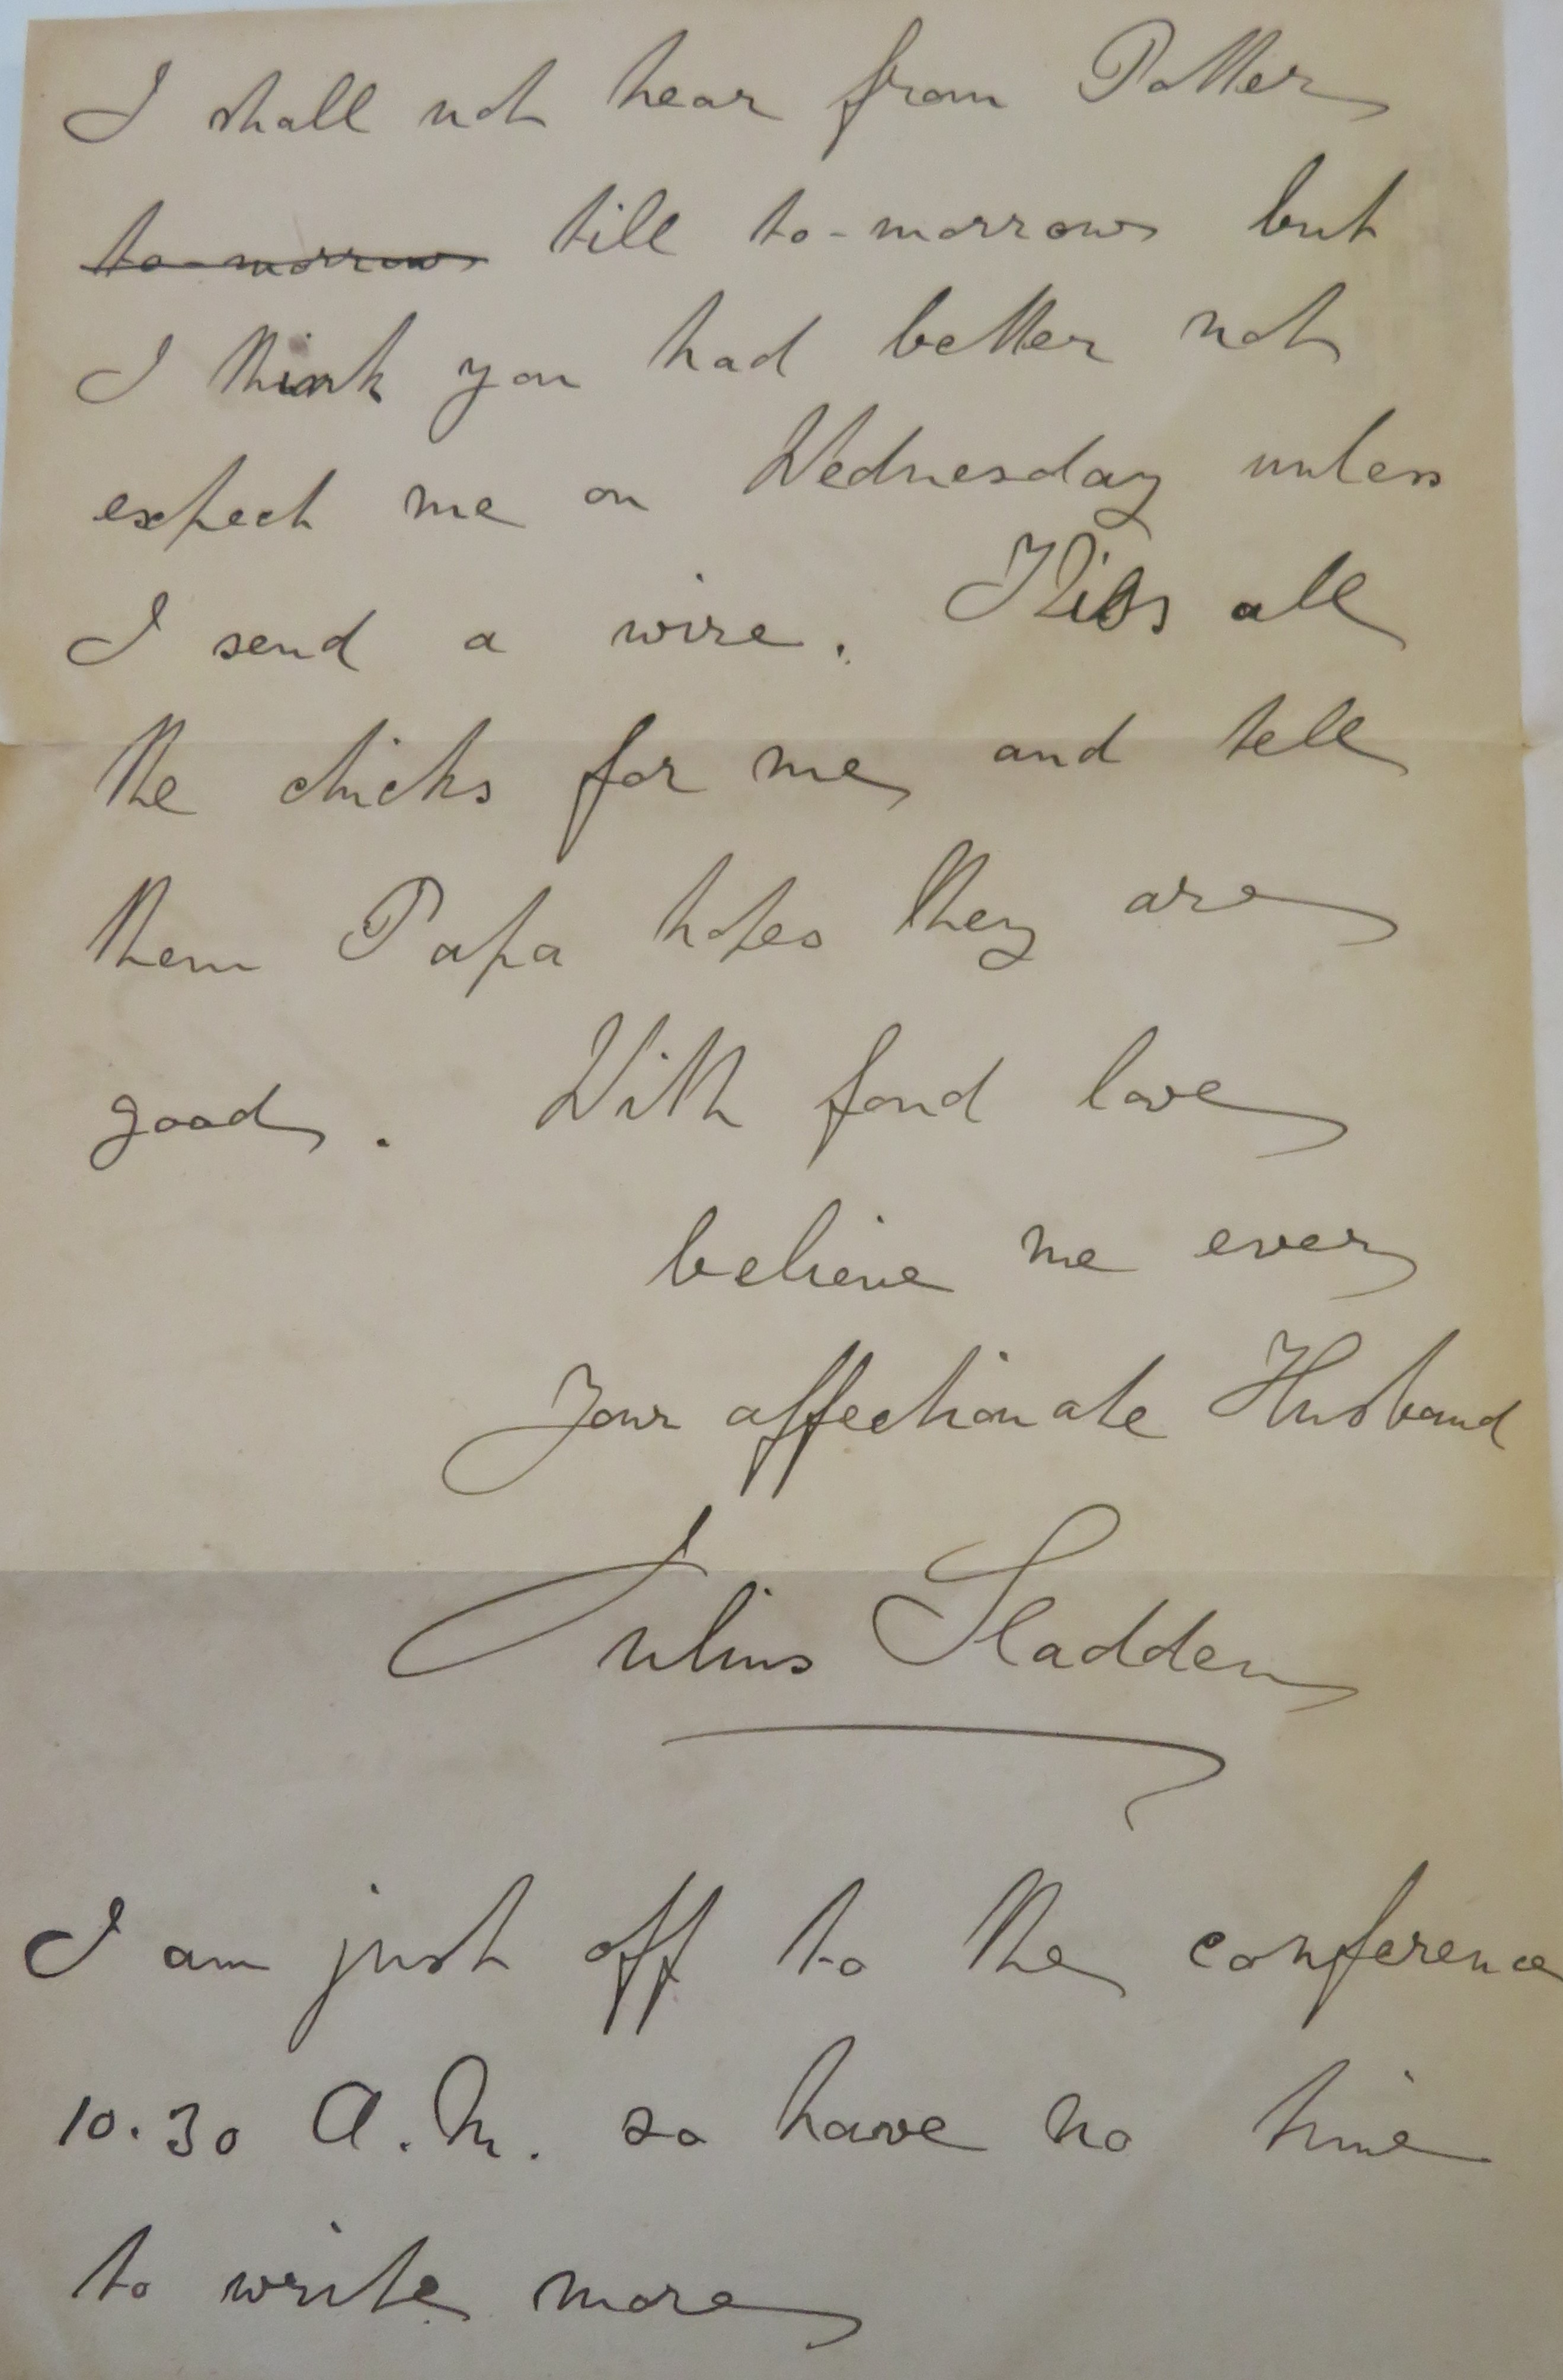 I shall not hear from Potter
~~to-morrow~~ till to-morrow but
I think you had better not
expect me on Wednesday unless
I send a wire. Kiss all
the chicks for me and tell
them Papa hopes they are
good. With fond love
believe me ever
Your affectionate Husband
Julius Sladden
I am just off to the conference
10.30 A.M. so have no time
to write more